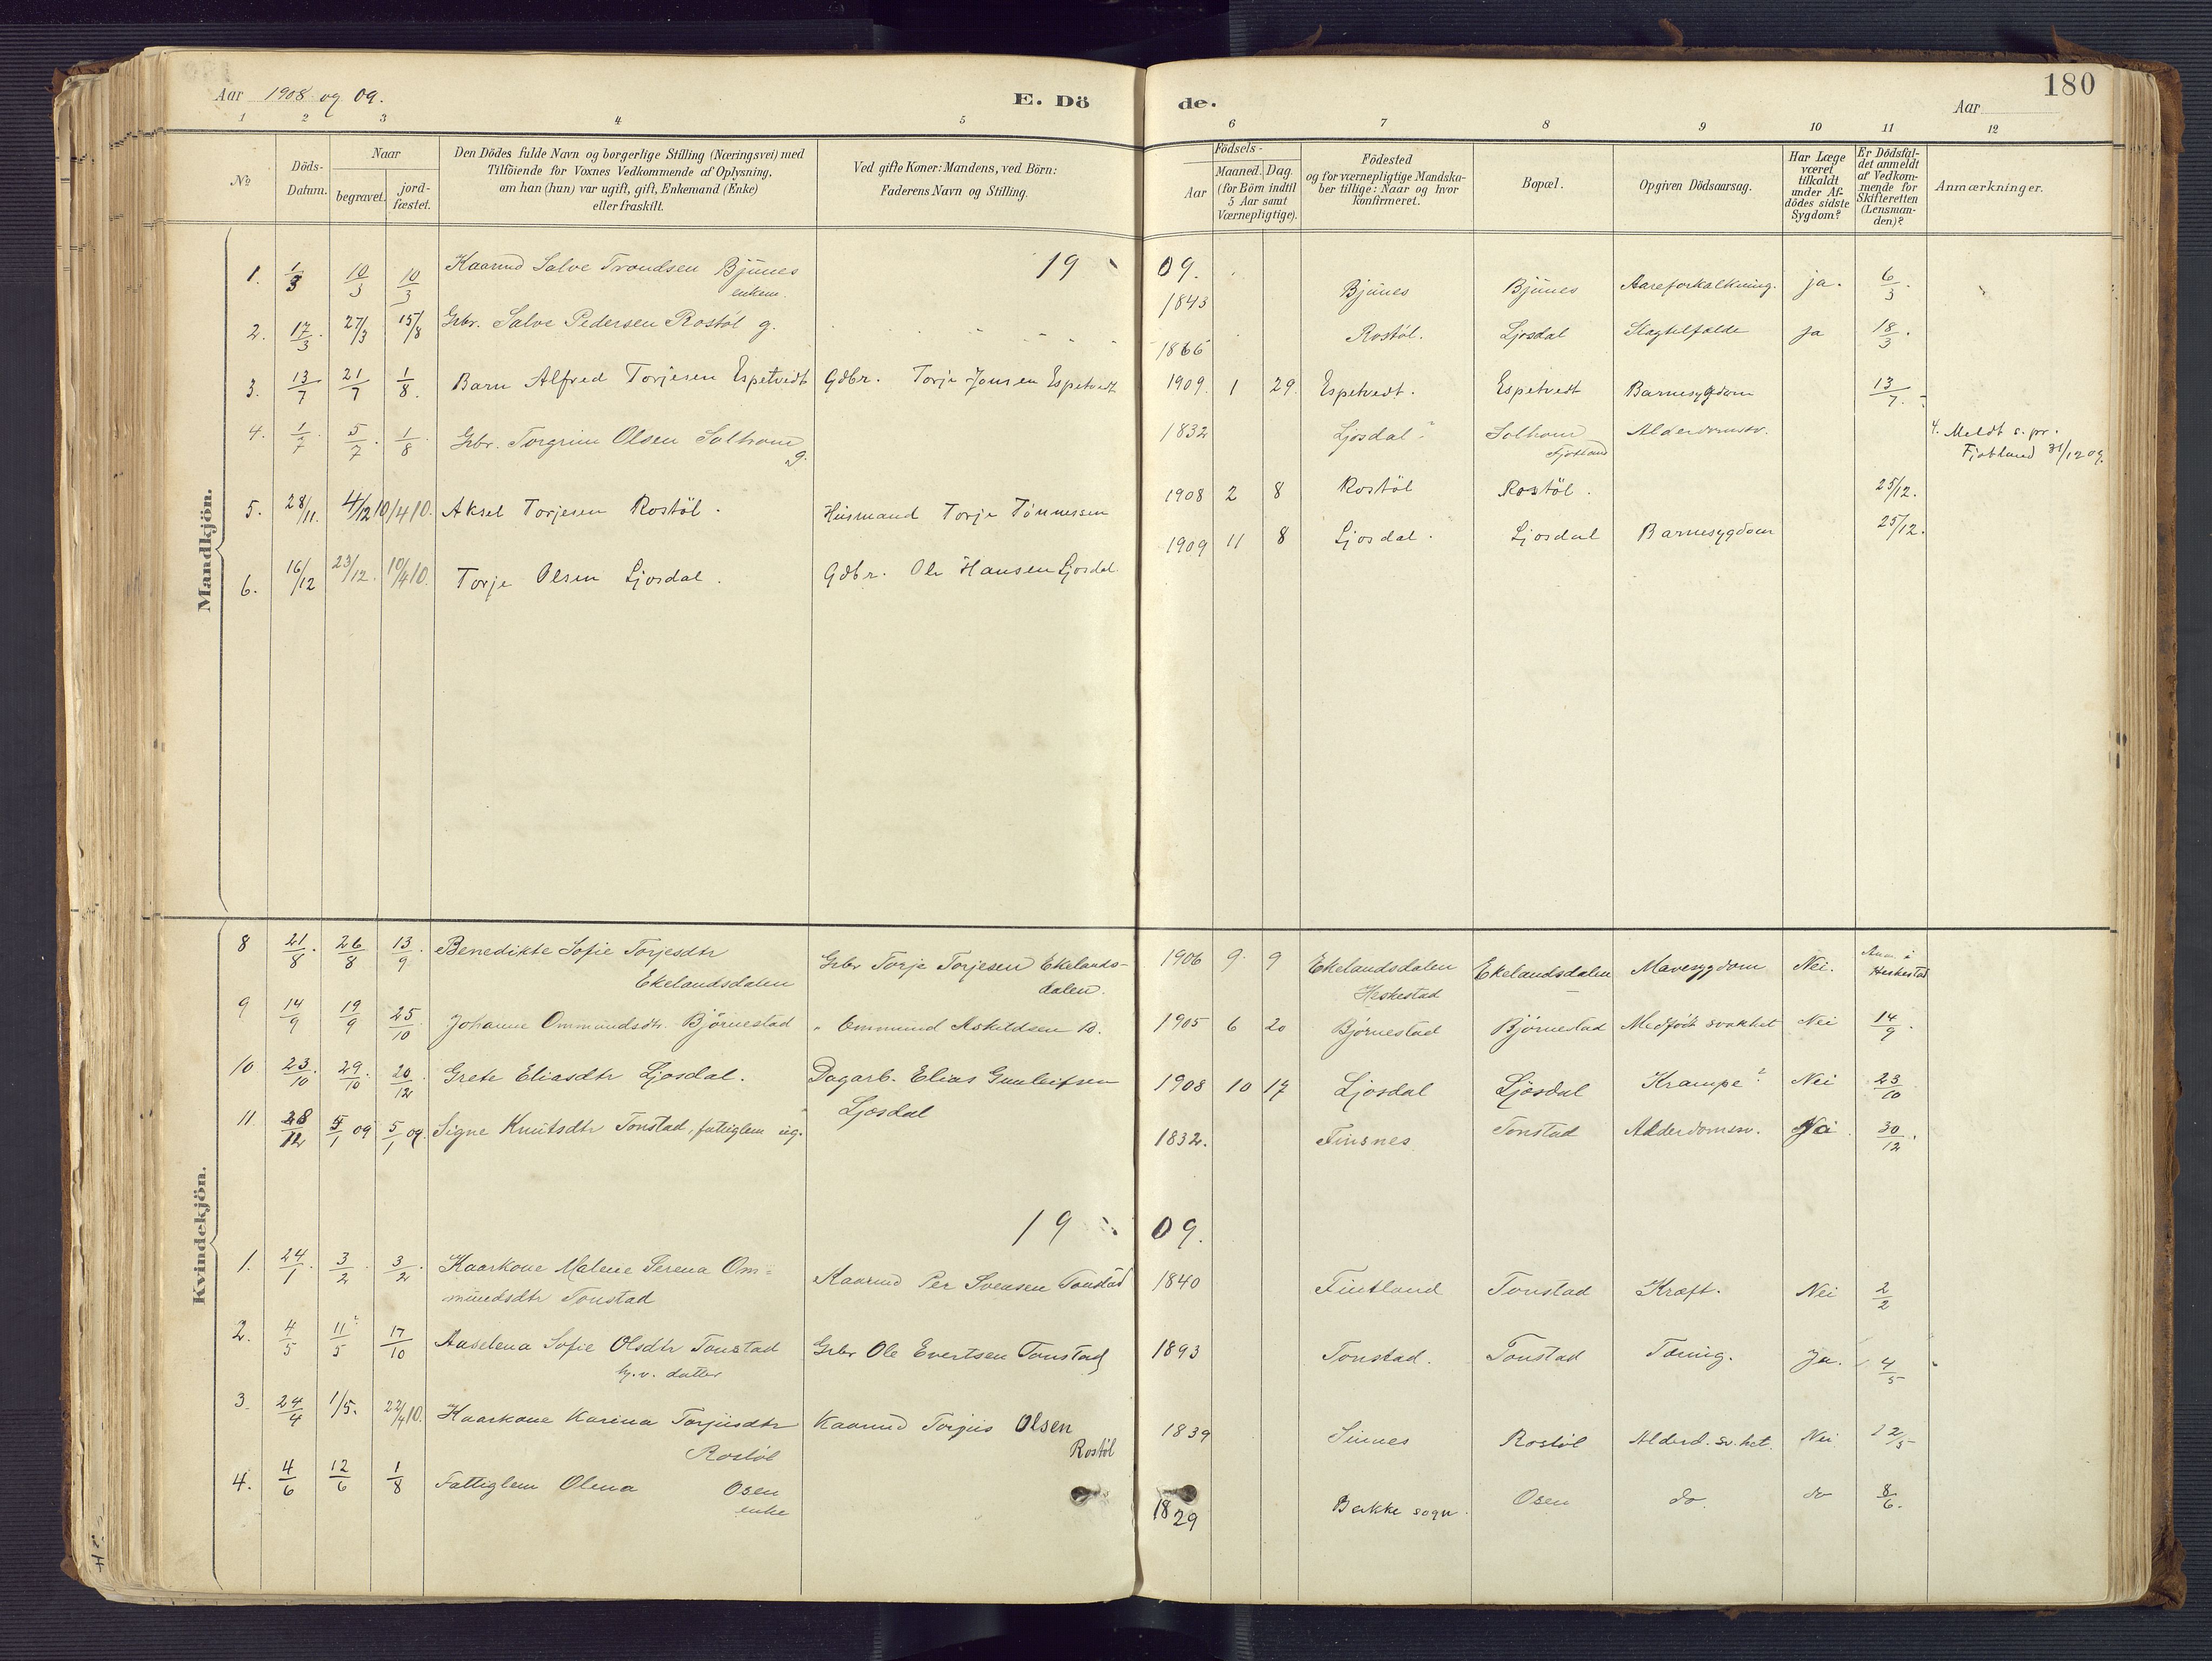 180
Aar 1908 og 09.
E. Dö de.
Aar
1 2 3 4 5 6 7 8 9 10 11 12
No
Döds-Datum.
Naar
begravet.
jord-fæstet.
Den Dödes fulde Navn og borgerlige Stilling (Næringsvei) med
Tilföiende for Voxnes Vedkommende af Oplysning,
om han (hun) var ugift, gift, Enkemand (Enke)
eller fraskilt.
Ved gifte Koner: Mandens, ved Börn:
Faderens Navn og Stilling.
Födsels-
Aar
Maaned. Dag.
(for Börn indtil
5 Aar samt
Værnepligtige).
Födested
og for værnepligtige Mandska-
ber tillige: Naar og hvor
konfirmeret.
Bopæl.
Opgiven Dödsaarsag.
Har Læge
været
tilkaldt
under Af-
dödes sidste
Sygdom?
Er Dödsfal-
det anmeldt
af Vedkom-
mende for
Skifteretten
(Lensman-
den)?
Anmærkninger.
Mandkjön.
19 09.
1. 1/3 10/3 10/3 Kaarmd Salve Trondsen Bjünes 1843 Bjünes Bjünes Aareforkalkning. ja. 6/3.
enkem.
2. 17/3. 27/3 15/8 Grbr. Salve Pedersen Rostöl g. 1866 Rostöl. Ljosdal Slagtilfælde ja 18/3.
3. 13/7 21/7 1/8. Barn Alfred Torjesen Espetvedt Gdbr. Torje Jonsen Espetvedt 1909. 1 29. Espetvedt. Espetvedt Barnesygdom 13/7.
4. 1/7 5/7. 1/8 Grbr. Torgrim Olsen Solhom g. 1832 Ljosdal? Solhom Fjotland Alderdomssv. 4. Meldt s. pr.
Fjotland 31/12 09.
5. 28/11. 4/12 10/4 10. Aksel Torjesen Rostöl. Hüsmand Torje Tönnessen 1908 2 8 Rostöl Rostöl. 25/12.
6. 16/12 23/12. 10/4 10. Torje Olsen Ljosdal. Gdbr. Ole Hansen Ljosdal. 1909 11 8 Ljosdal. Ljosdal Barnesygdom 25/12.
Kvindekjön.
8 21/8. 26/8 13/9. Benedikte Sofie Torjesdtr Grbr Torje Torjesen Ekelands- 1906 9 9 Ekelandsdalen Ekelandsdalen Mavesygdom Nei. Anm. i
Ekelandsdalen dalen. Heskestad Heskestad
9 14/9 19/9 25/10 Johanne Ommundsdtr. Björnestad " Ommund Askildsen B. 1905 6 20 Björnestad Björnestad Medfödt svakhet Nei 14/9.
10 23/10. 29/10. 20/12 Grete Eliasdtr Ljosdal. Dagarb. Elias Gunleifsen 1908 10 17 Ljosdal Ljosdal Krampe? Nei 23/10
Ljosdal
11. 28/12 5/1 09 5/1 09. Signe Knütsdtr Tonstad, fattiglem üg. 1832. Finsnes Tonstad Alderdomssv. 30/12.
19 09.
1. 24/1. 3/2. 3/2. Kaarkone Malene Serena Om= Kaarmd Per Svensen Tonstad 1840 Fintland Tonstad Kræft. Nei 2/2
mündsdtr Tonstad
2. 4/5 11/5? 17/10 Aaselena Sofie Olsdtr Tonstad Grbr Ole Evertsen Tonstad 1893 Tonstad. Tonstad Tæring. Ja. 4/5
hj.v. datter
3. 24/4 1/5. 22/4 10. Kaarkone Karina Torjüsdtr Kaarmd Torjüs Olsen 1839 Sinnes Rostöl Alderd. sv.het. Nei 22/5
Rostöl Rostöl
4. 4/6 12/6 1/8 Fattiglem Olena Osen 1829 Bakke sogn. Osen do. do 8/6.
enke